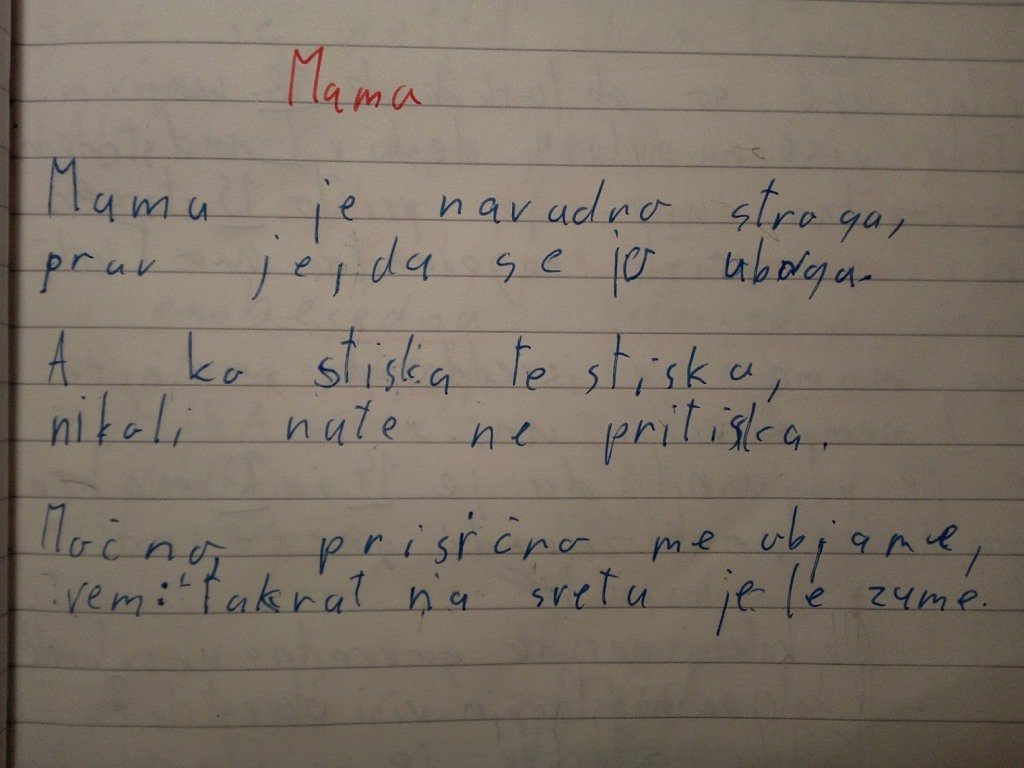 Mama
Mama je navadno stroga,
prav je, da se jo uboga.
A ko stiska te stiska,
nikoli nate ne pritiska.
Močno, prisrčno me objame,
vem: takrat na svetu je le zame.